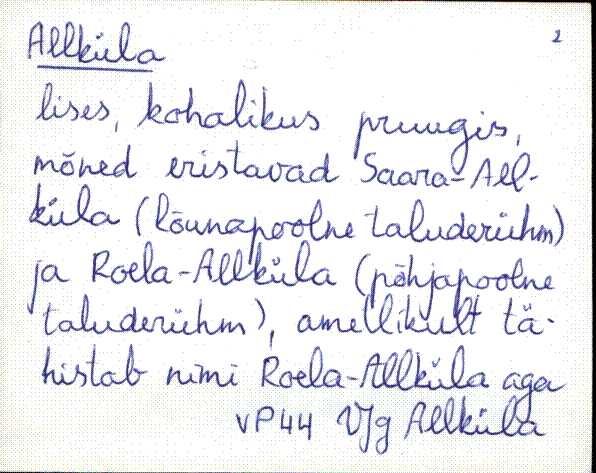 Allküla 2
lises, kohalikus pruugis,
mõned eristavad Saara-All-
küla (lõunapoolne taluderühm)
ja Roela-Allküla (põhjapoolne
taluderühm), ametlikult tä-
histab nimi Roela-Allküla aga
VP44 VJg Allküla